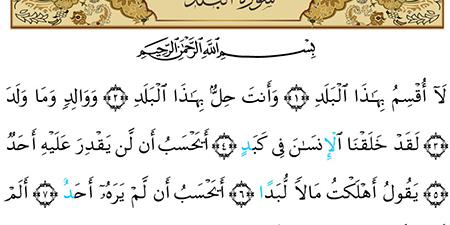 سورة البلد
بِسْمِ اللَّهِ الرَّحْمَٰنِ الرَّحِيمِ
لَآ أُقْسِمُ بِهَٰذَا الْبَلَدِ ﴿١﴾ وَأَنتَ حِلٌّۢ بِهَٰذَا الْبَلَدِ ﴿٢﴾ وَوَالِدٍ وَمَا وَلَدَ
﴿٣﴾ لَقَدْ خَلَقْنَا الْإِنسَٰنَ فِى كَبَدٍ ﴿٤﴾ أَيَحْسَبُ أَن لَّن يَقْدِرَ عَلَيْهِ أَحَدٌ
﴿٥﴾ يَقُولُ أَهْلَكْتُ مَالًا لُّبَدًا ﴿٦﴾ أَيَحْسَبُ أَن لَّمْ يَرَهُۥٓ أَحَدٌ ﴿٧﴾ أَلَمْ